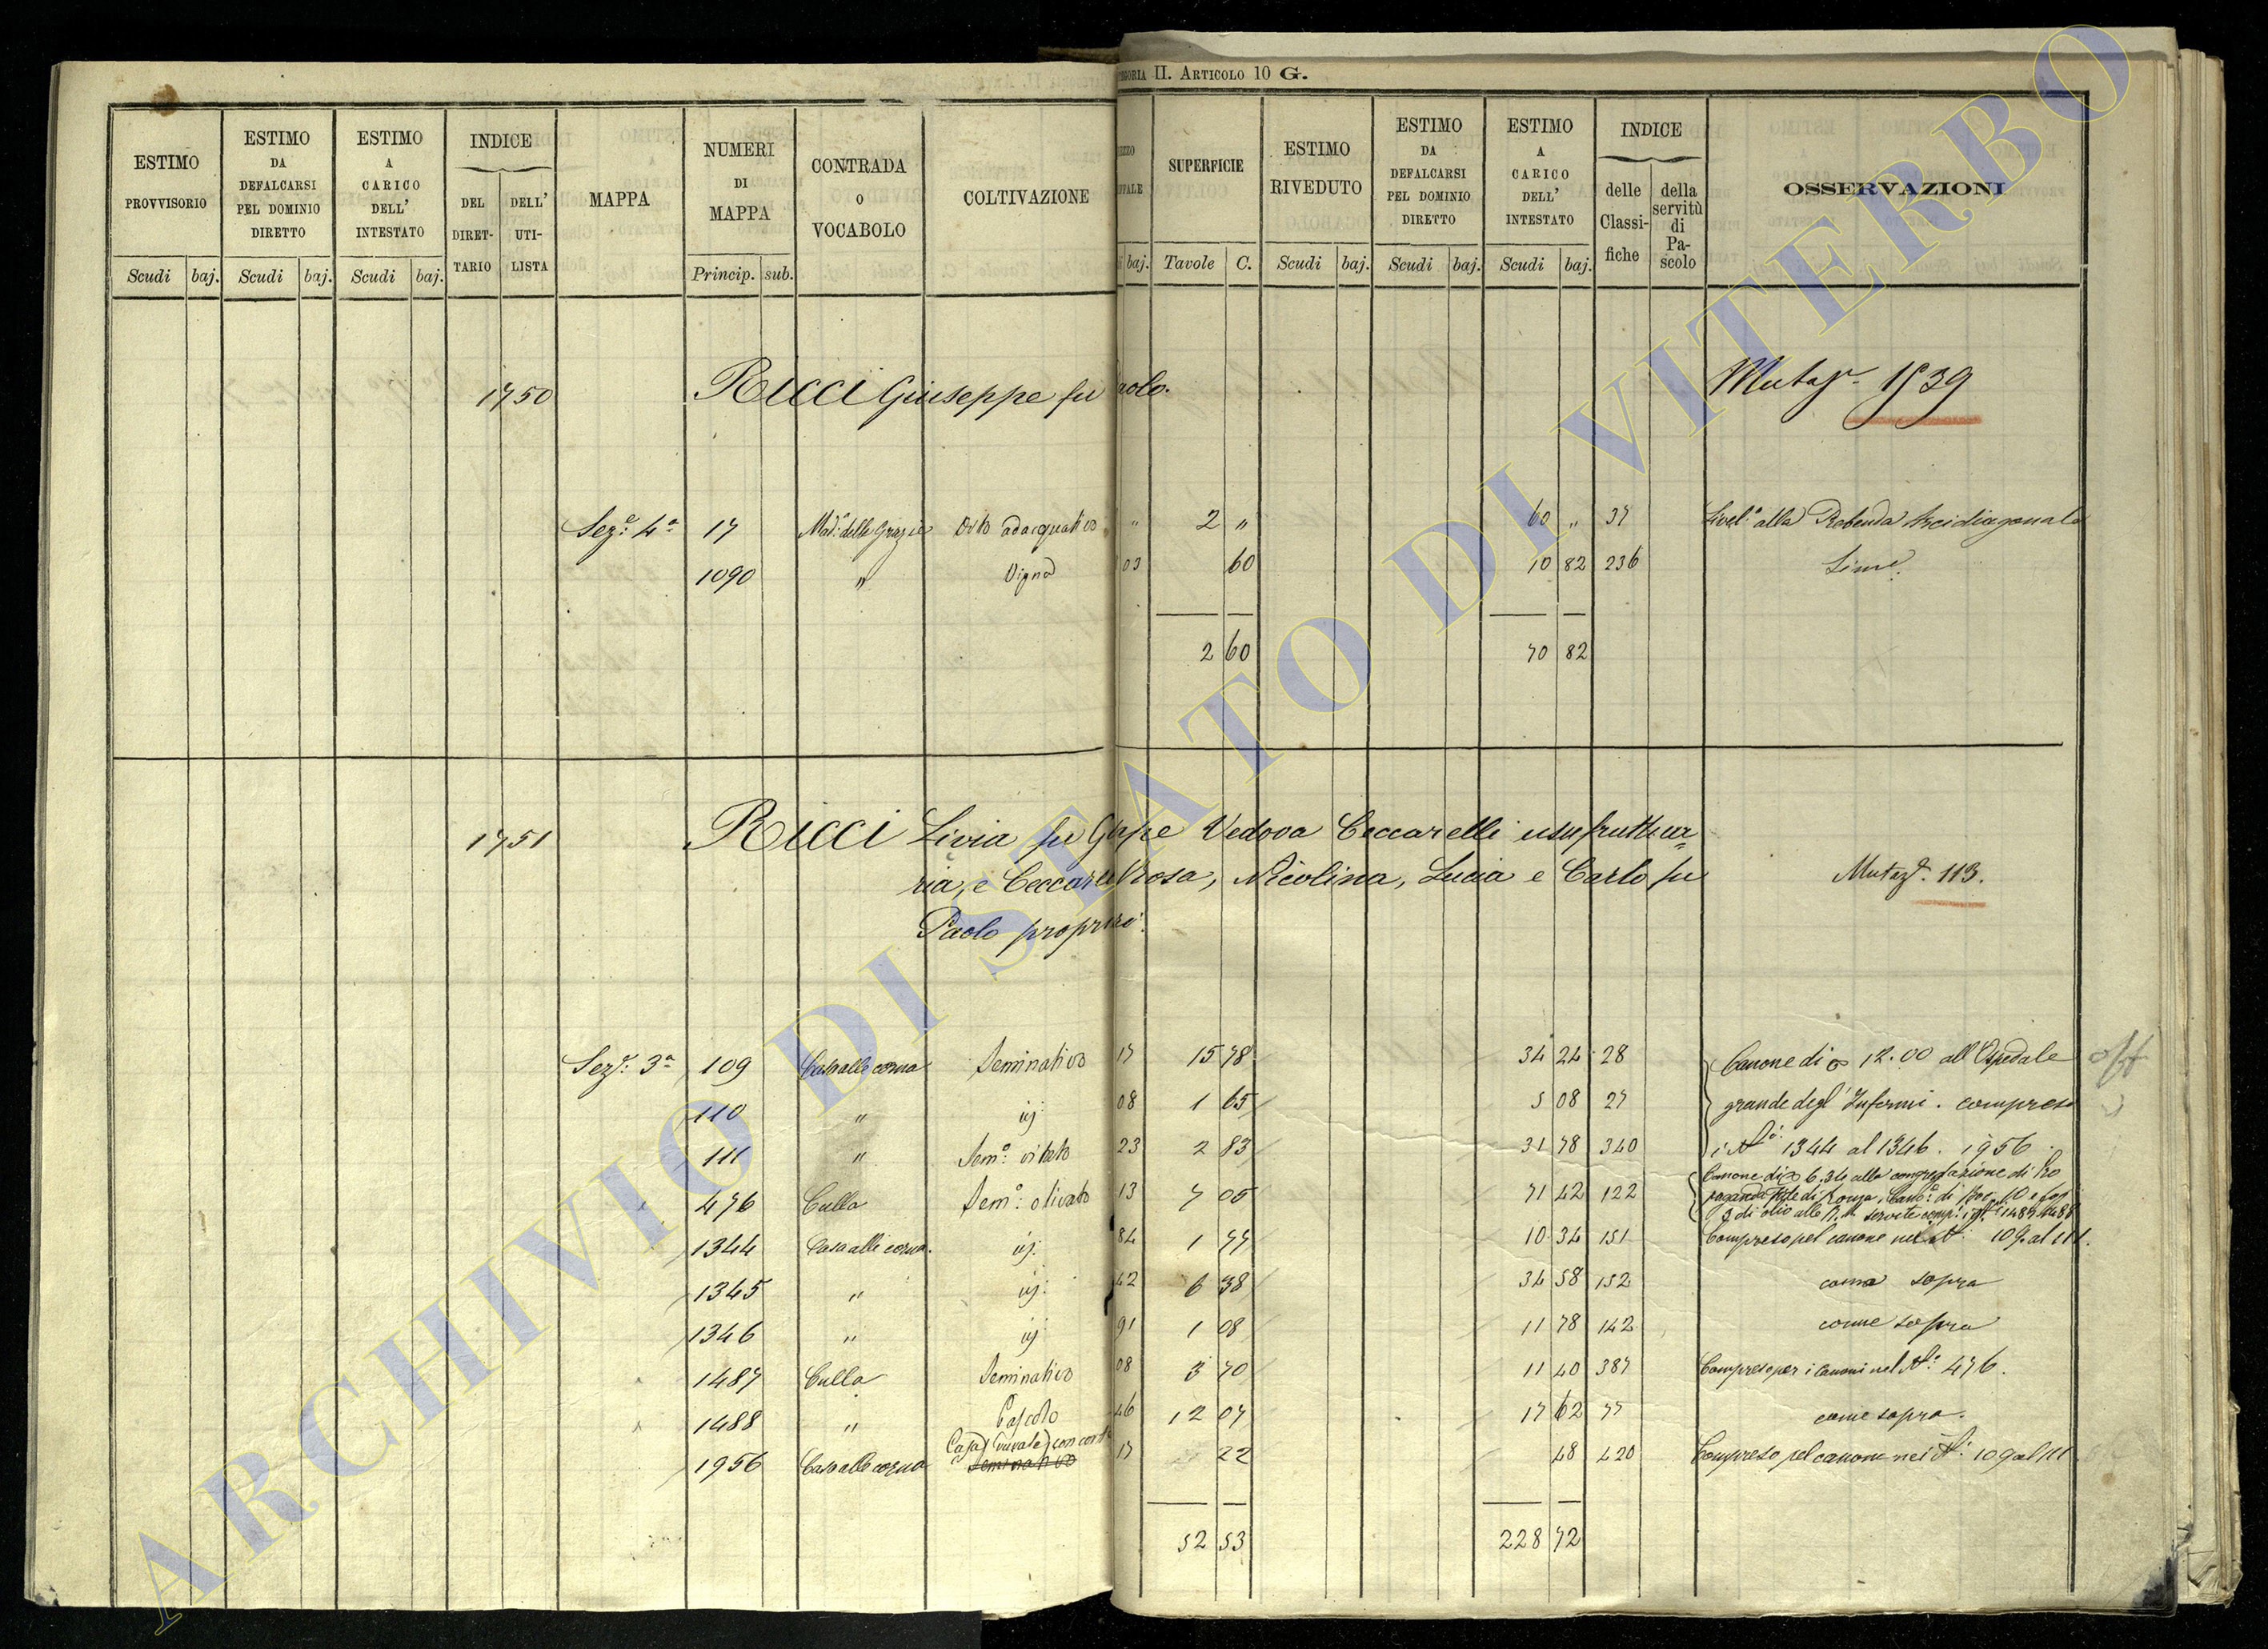 CATEGORIA II. ARTICOLO 10 G.
ESTIMO PROVVISORIO
ESTIMO DA DEFALCARSI PEL DOMINIO DIRETTO
ESTIMO A CARICO DELL' INTESTATO
INDICE
DEL DIRETTARIO
DELL' UTILISTA
MAPPA
NUMERI DI MAPPA
CONTRADA O VOCABOLO
COLTIVAZIONE
SUPERFICIE
ESTIMO RIVEDUTO
ESTIMO DA DEFALCARSI PEL DOMINIO DIRETTO
ESTIMO A CARICO DELL' INTESTATO
INDICE
delle Classifiche
della servitù di Pascolo
OSSERVAZIONI
Scudi baj. Scudi baj. Scudi baj. Princip. sub. baj. Tavole C. Scudi baj. Scudi baj. Scudi baj.
1750 Ricci Giuseppe fu Paolo. Mutaz. 1539
Sez. 4a 17 Mad. delle Grazie Orto adacquativo " 2 " 60 " 37 Livel. alla Prebenda Arcidiaconale
1090 " Vigna 03 60 10 82 236
2 60 70 82
1751 Ricci Livia fu Gispe Vedova Ceccarelli usufruttua=
ria, e Ceccarelli Rosa, Nicolina, Lucia e Carlo fu Mutaz. 113.
Paolo proprri
Sez. 3a 109 Casa alle corna Seminativo 17 15 78 34 24 28 Canone di 12.00 all'Ospedale
110 " 08 1 65 5 08 27 grande degl'Infermi. compreso
111 " Sem. vitato 23 2 83 31 78 340 i Ni 1344 al 1346. 1956
Canone di 6.34 alla congregazione di Pro
476 Culla Sem. olivato 13 7 05 71 42 122 paganda fide di Roma,
1344 Casa alle corna. 84 1 77 10 34 151 Compreso pel canone nel N. 109 al 111.
1345 " 42 6 38 34 58 152 come sopra
1346 " 91 1 08 11 78 142 come sopra
1487 Culla Seminativo 08 3 70 11 40 387 Compreso per i canoni nel N. 476.
1488 " Pascolo 46 12 07 17 62 77 come sopra.
Casa
1956 Casa alle corna Seminativo 17 22 48 420 Compreso pel canone nei Ni 109 al 111
52 53 228 72
ARCHIVIO DI STATO DI VITERBO